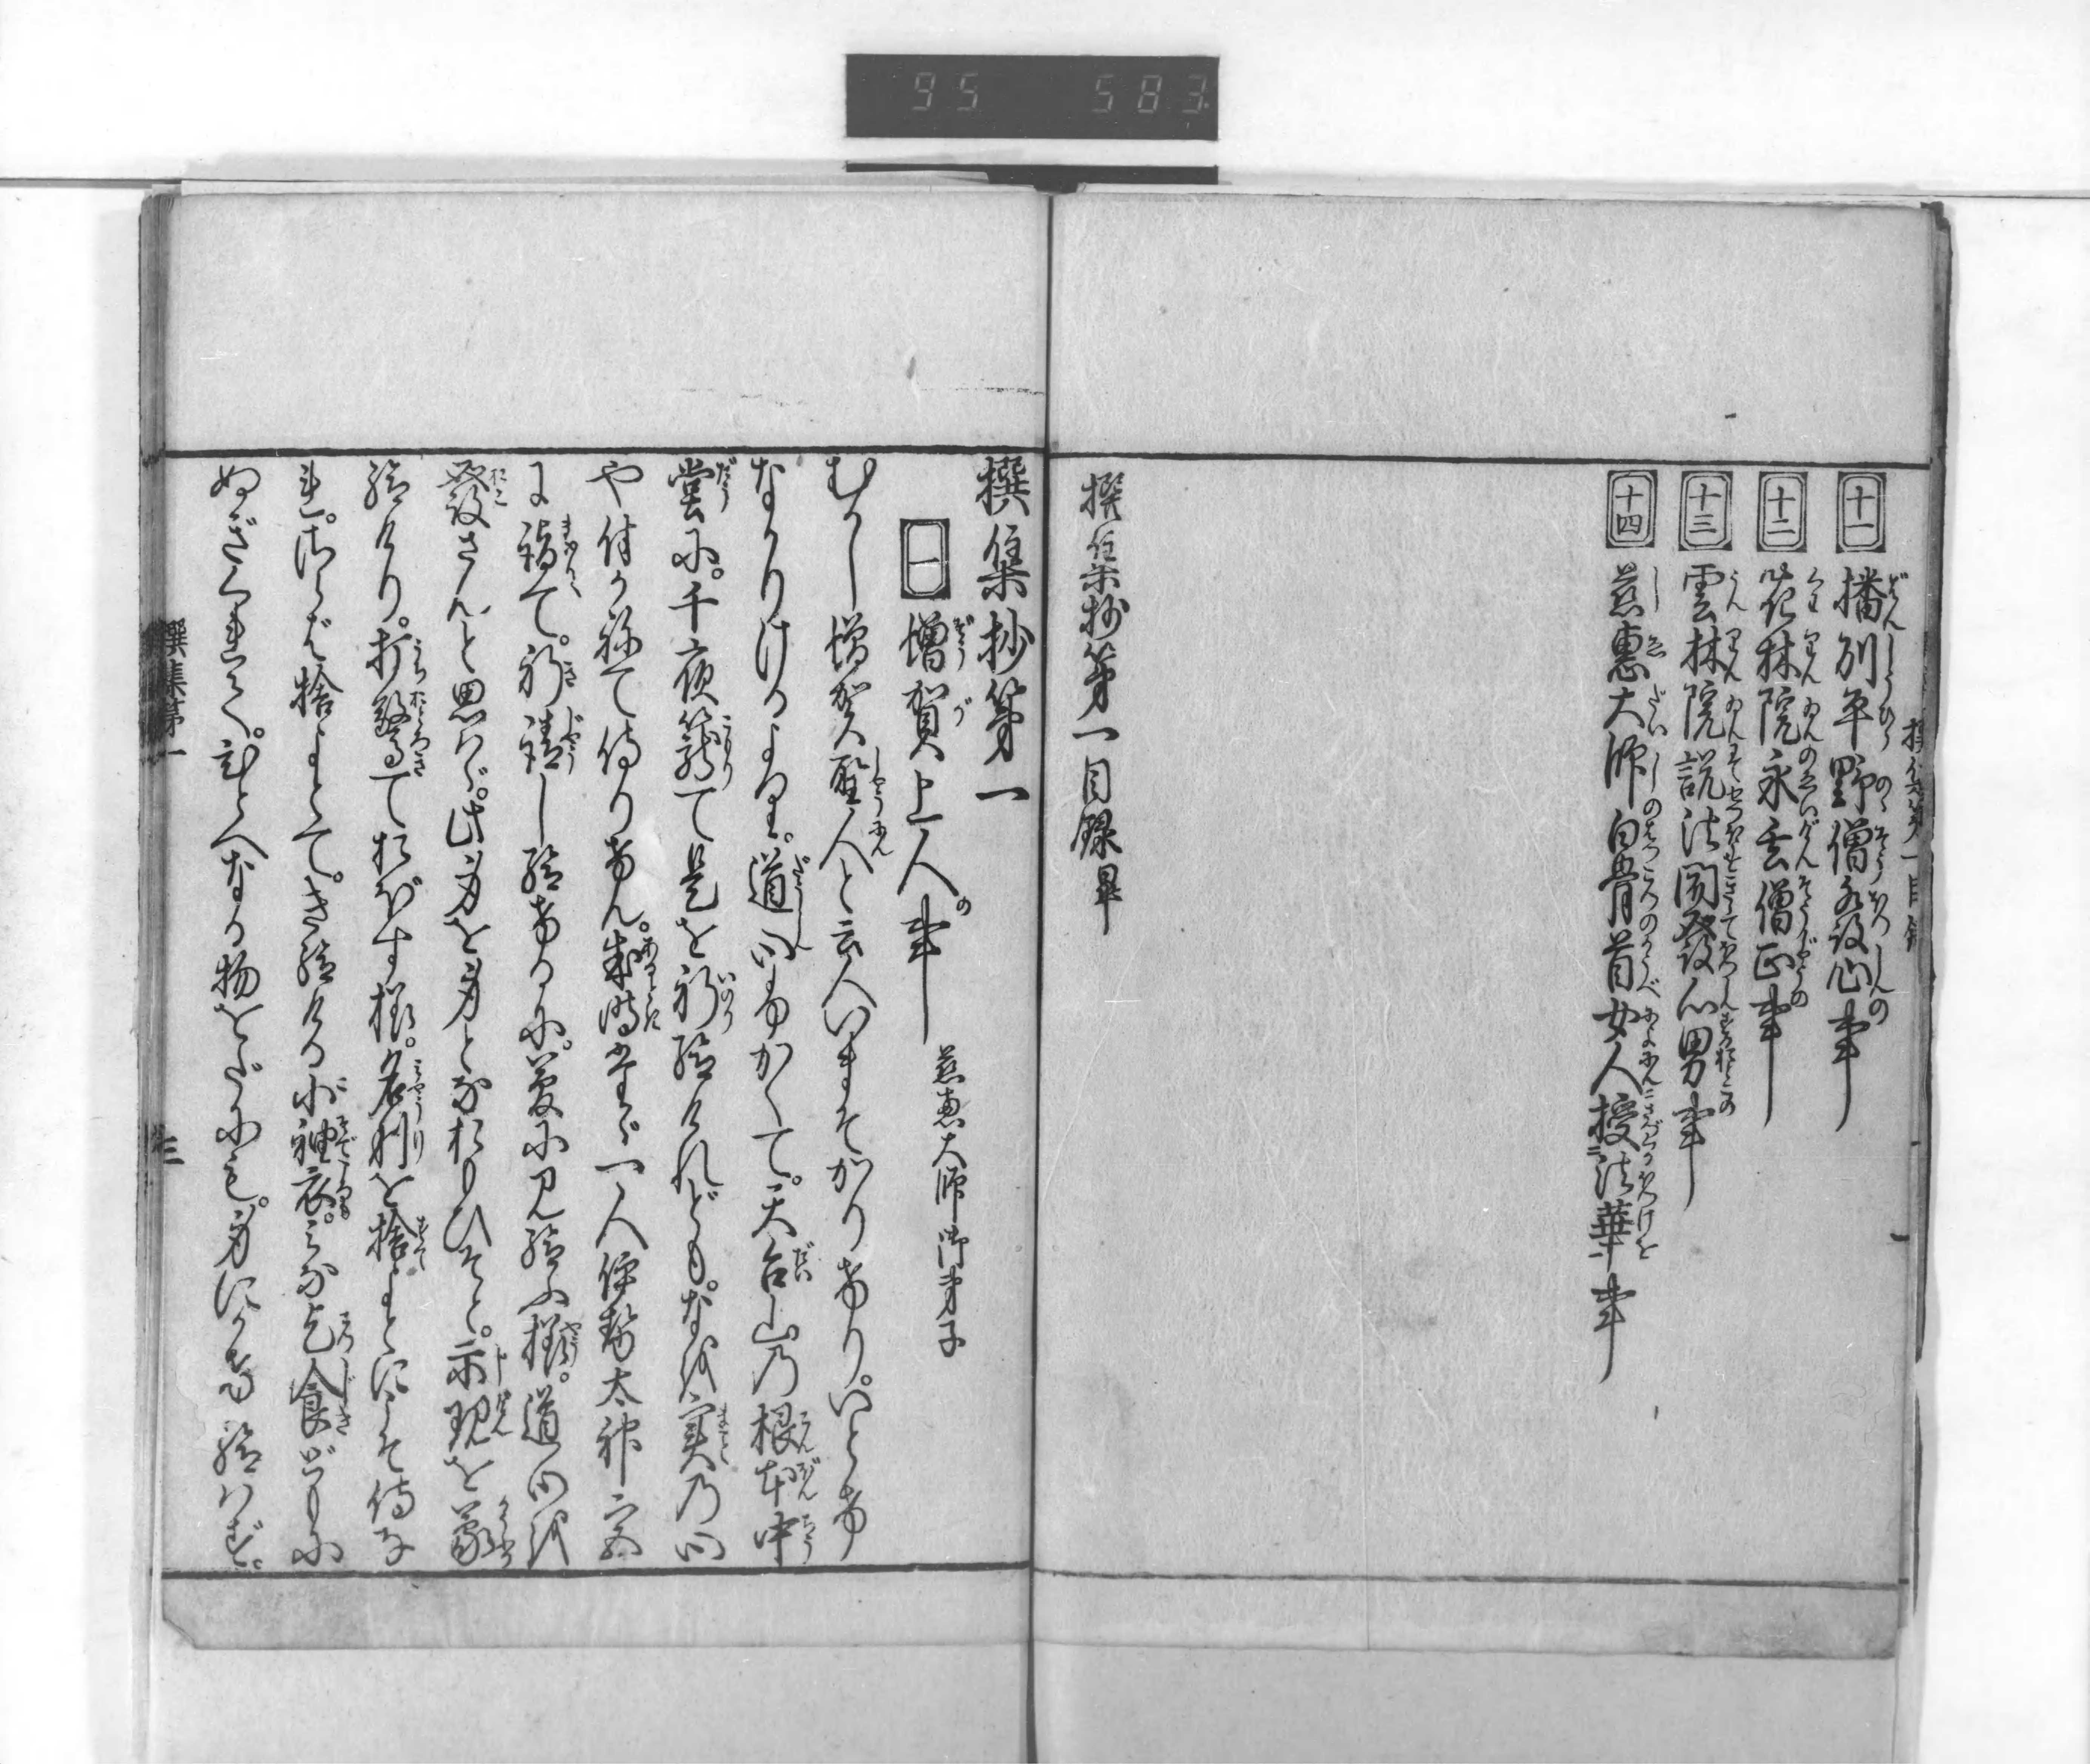 95 583
十一 播州平野僧発心事
十二 花林院永玄僧正事
十三 雲林院説法聞發心男事
十四 慈惠大師白骨首女人授法華事
撰集抄第一目録畢
撰集抄第一
一 増賀上人事 慈恵大師御弟子
むかし増賀聖人と云人いまそかりけり。いとけ
なかりけるより。道心ふかくて。天台山乃根本中
堂に。千夜籠て是を祈給けれども。なを実乃心
や付かねて侍りけん。或時たゞ一人伊勢太神宮
に詣て。祈請し給けるに。夢に見給ふ様。道心を
發さんと思はゞ。此身を身とな思ひそと。示現を蒙
給けり。打驚ておぼす様。名利を捨よとにこそ侍な
れ。さらば捨よとて。き給ける小袖衣。みな乞食どもに
ぬぎくれて。ひとへなる物をだにも。身にかけ給はず。
撰集第一